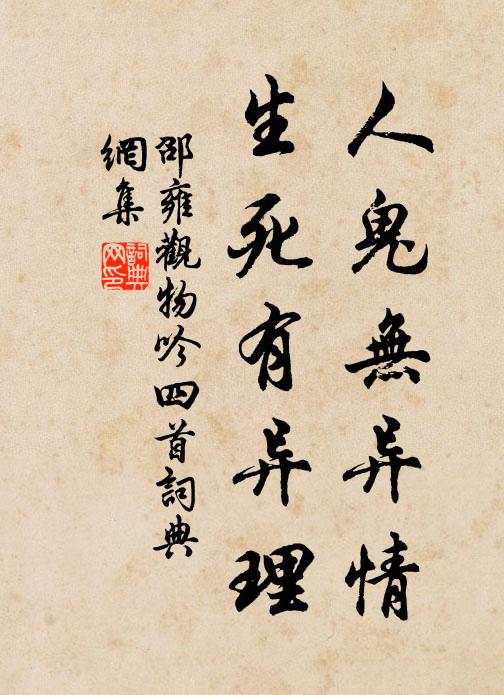 人鬼無异情
生死有异理
邵雍觀物吟四首詞典
網集
詞典
网印